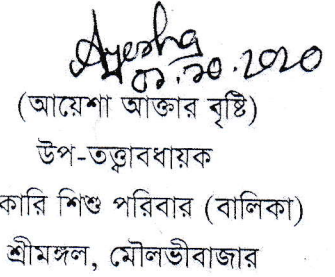 Ayesha
01.10.2020
(আয়েশা আক্তার বৃষ্টি)
উপ-তত্ত্বাবধায়ক
কারি শিশু পরিবার (বালিকা)
শ্রীমঙ্গল, মৌলভীবাজার